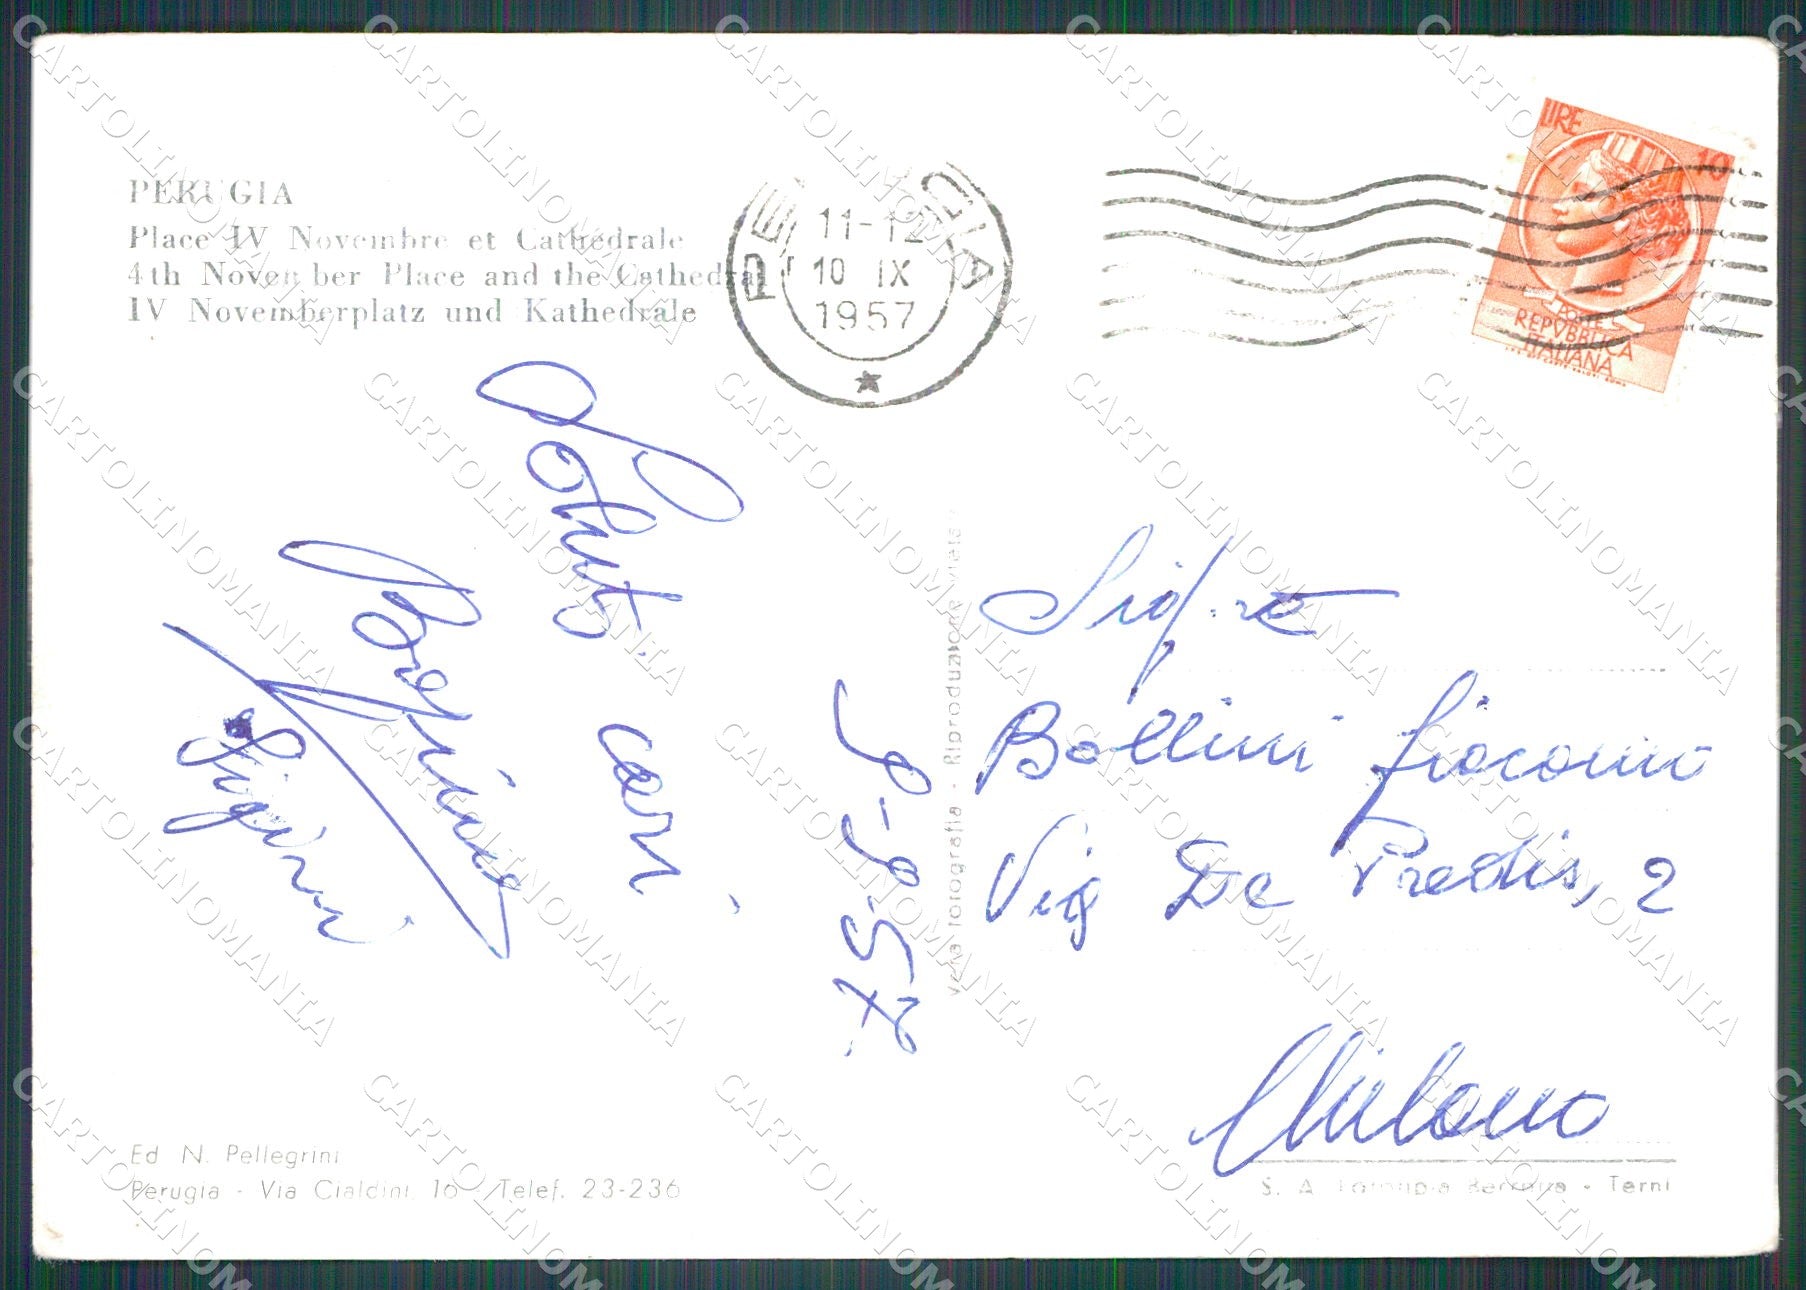 PERUGIA
Place IV Novembre et Cathédrale
4th November Place and the Cathedral
IV Novemberplatz und Kathedrale
PERUGIA
11-12
10 IX
1957
LIRE 10
POSTE
REPVBBLICA
ITALIANA
Saluti cari
9-9-57
Vera fotografia - Riproduzione vietata
Sig.re
Bollini Giacomo
Via De Predis, 2
Milano
Ed N. Pellegrini
Perugia - Via Cialdini, 16 - Telef. 23-236
S. A. - Terni
CARTOLINOMANIA